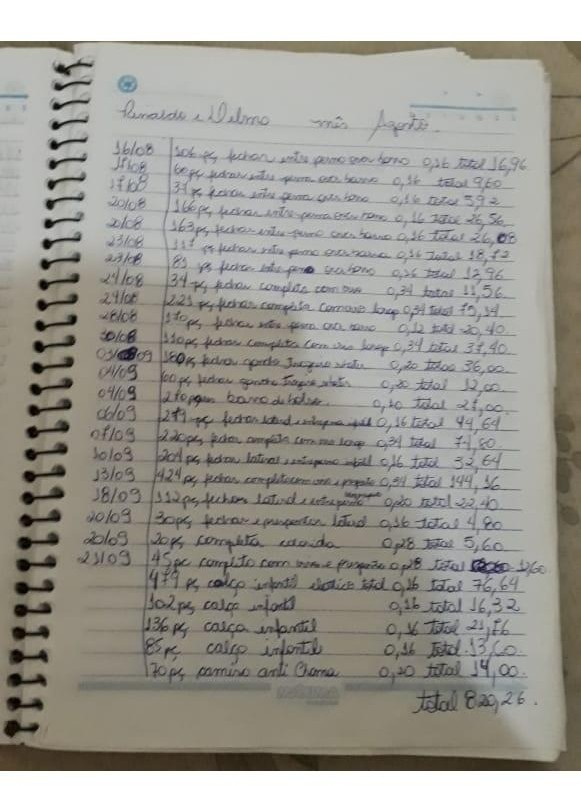 Rinaldo e Dilma mês Agosto.
16/08 106 pç fechar entre perna com barra 0,16 total 16,96
17/08 60 pç fechar entre perna com barra 0,16 total 9,60
17/08 37 pç fechar entre perna com barra 0,16 total 5,92
20/08 166 pç fechar entre perna com barra 0,16 total 26,56
20/08 163 pç fechar entre perna com barra 0,16 total 26,08
23/08 117 pç fechar entre perna com barra 0,16 total 18,72
23/08 81 pç fechar entre perna com barra 0,16 total 12,96
24/08 34 pç fechar completa com 0,34 total 11,56
24/08 221 pç fechar completa com 0,34 total 75,14
28/08 170 pç fechar entre perna com barra 0,12 total 20,40
30/08 110 pç fechar completa com 0,34 total 37,40
03/09 180 pç fechar 0,20 total 36,00
04/09 60 pç fechar 0,20 total 12,00
04/09 270 barra de bolso 0,10 total 27,00
06/09 279 pç fechar lateral e entreperna 0,16 total 44,64
07/09 220 pç fechar completa com 0,34 total 74,80
10/09 204 pç fechar lateral e entreperna infantil 0,16 total 32,64
13/09 424 pç fechar completa com e 0,34 total 144,16
18/09 112 pç fechar lateral e entreperna 0,20 total 22,40
20/09 30 pç fechar e lateral 0,16 total 4,80
20/09 20 pç completa 0,28 total 5,60
21/09 45 pç completa com e 0,28 total 12,60
479 pç calça infantil elastico total 0,16 total 76,64
102 pç calça infantil 0,16 total 16,32
136 pç calça infantil 0,16 total 21,76
85 pç calça infantil 0,16 total 13,60
70 pç anti Chama 0,20 total 14,00
total 820,26.